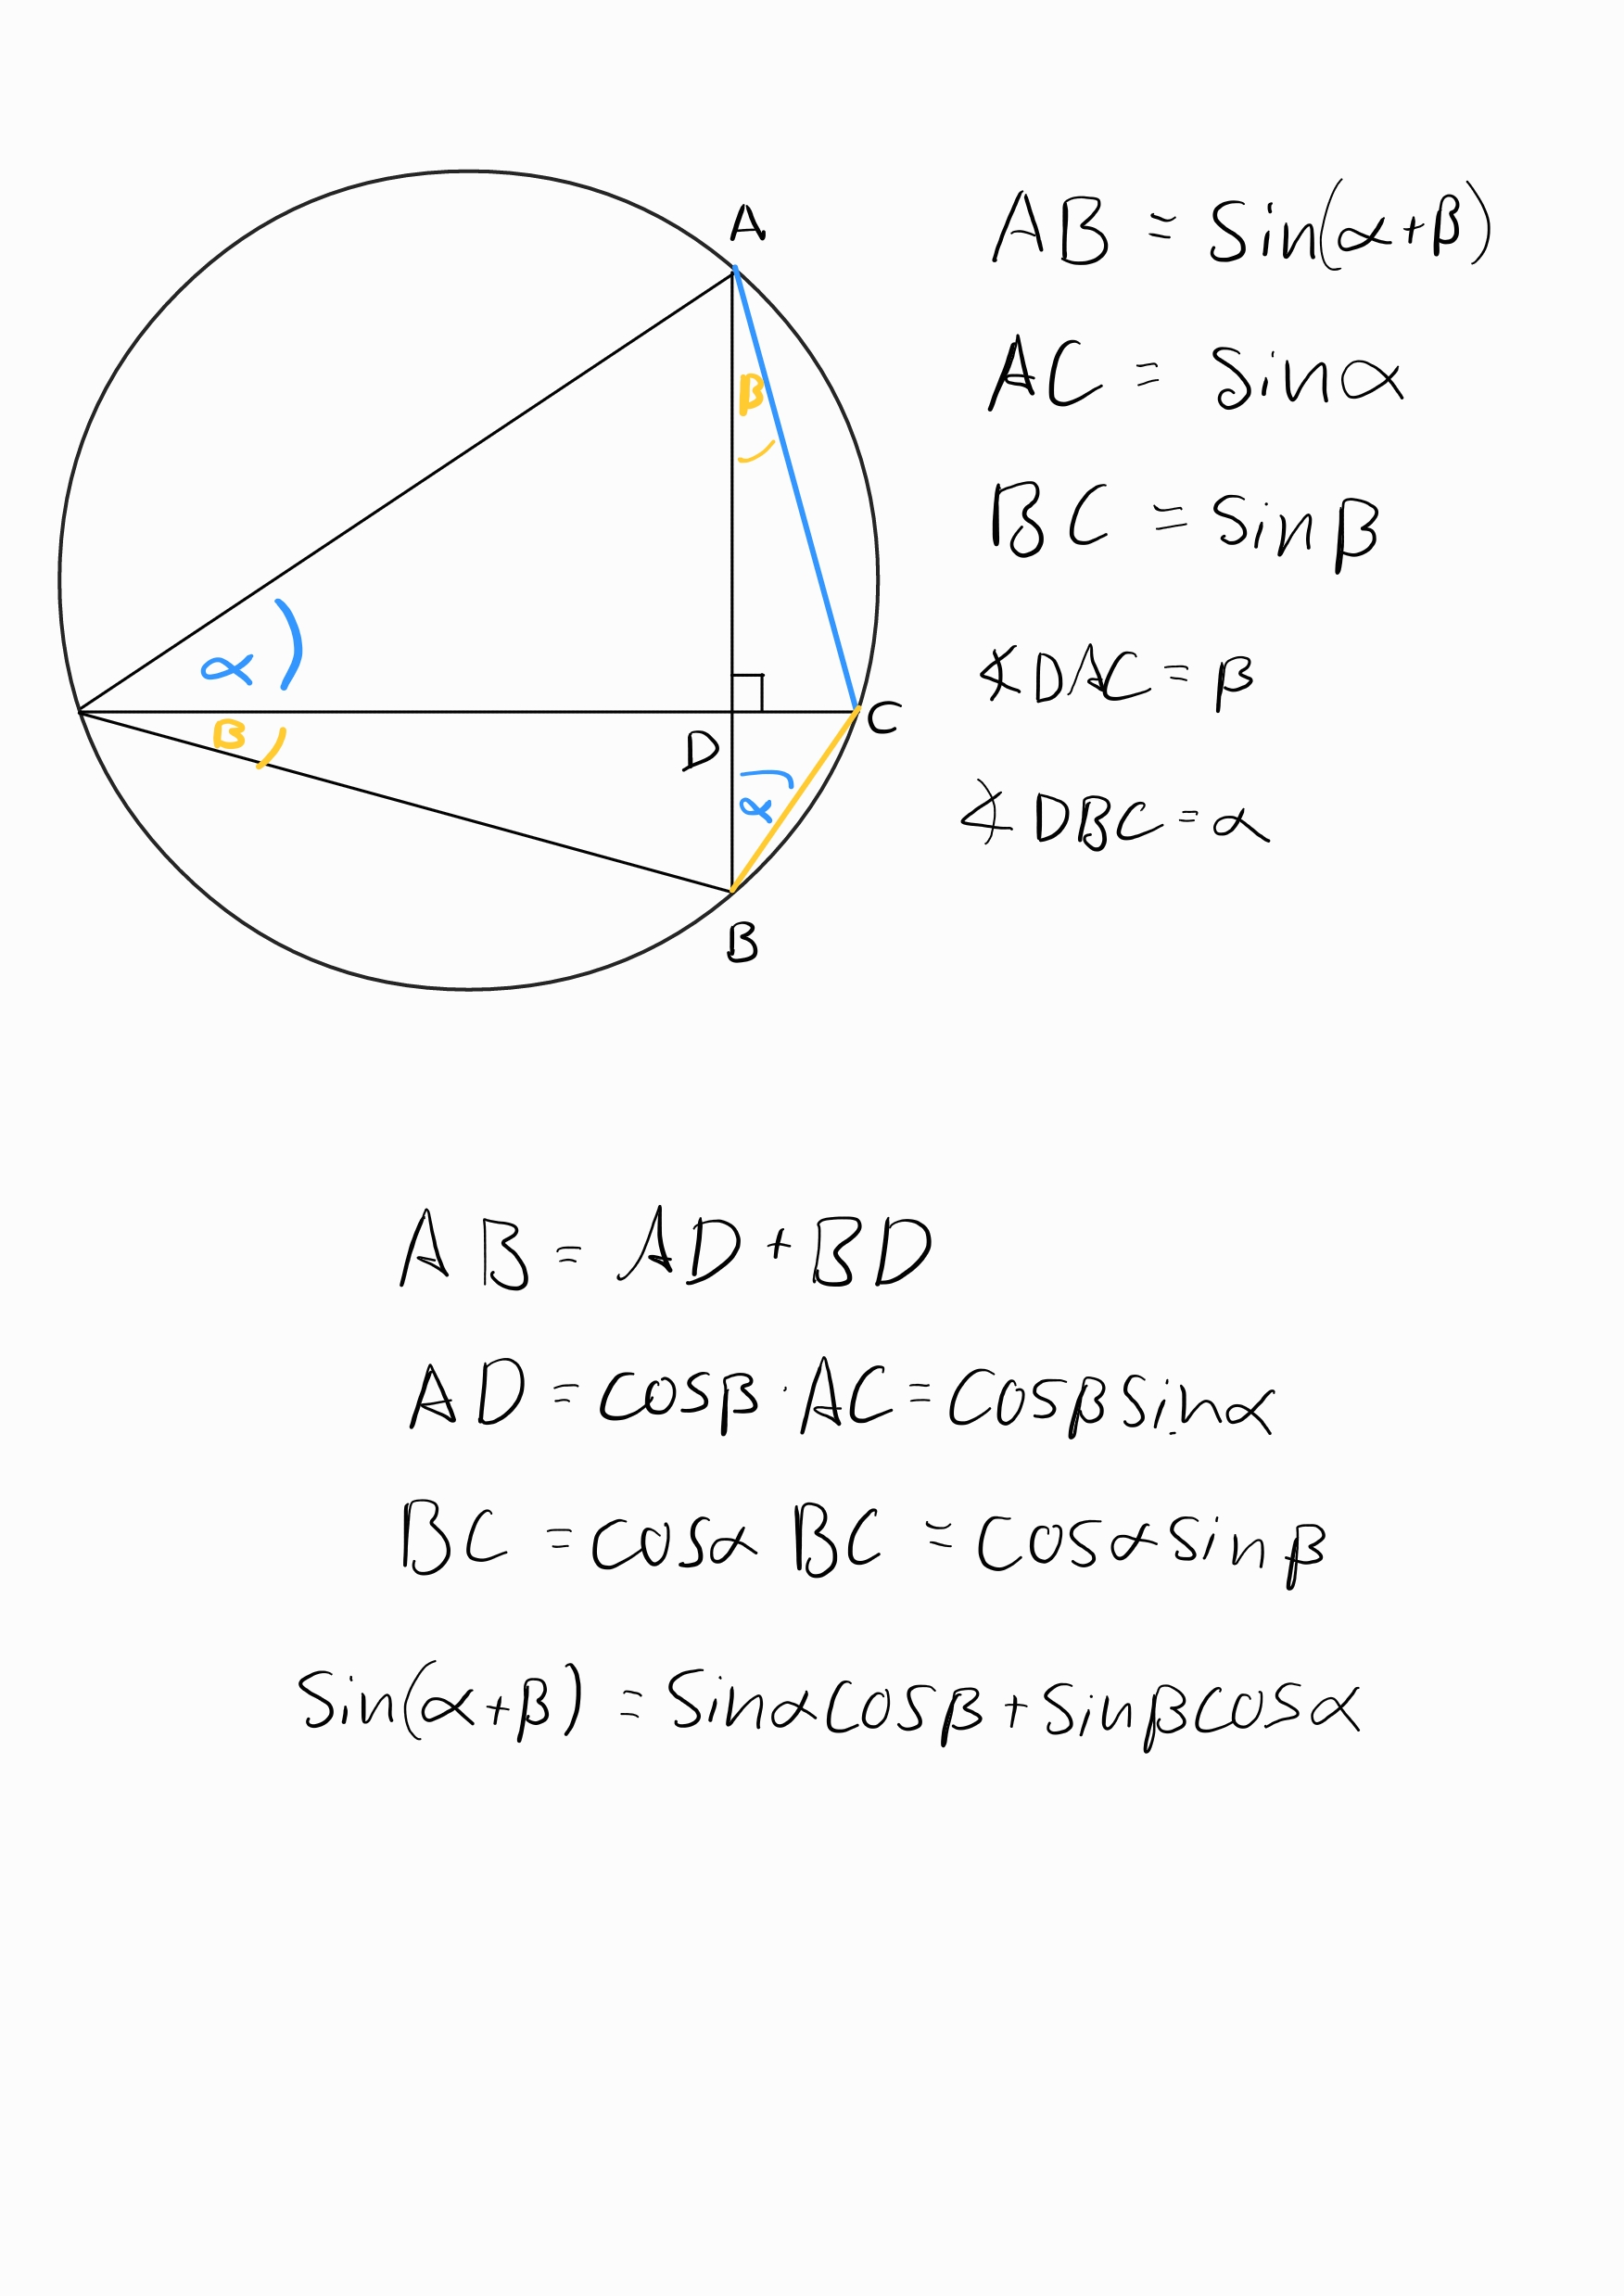 A
AB = Sin(α+β)
AC = Sinα
β
BC = Sinβ
α
∡DAC = β
β
D
C
α
∡DBC = α
B
AB = AD + BD
AD = cosβ · AC = cosβsinα
BC = cosα BC = cosαsinβ
Sin(α+β) = Sinαcosβ + sinβcosα